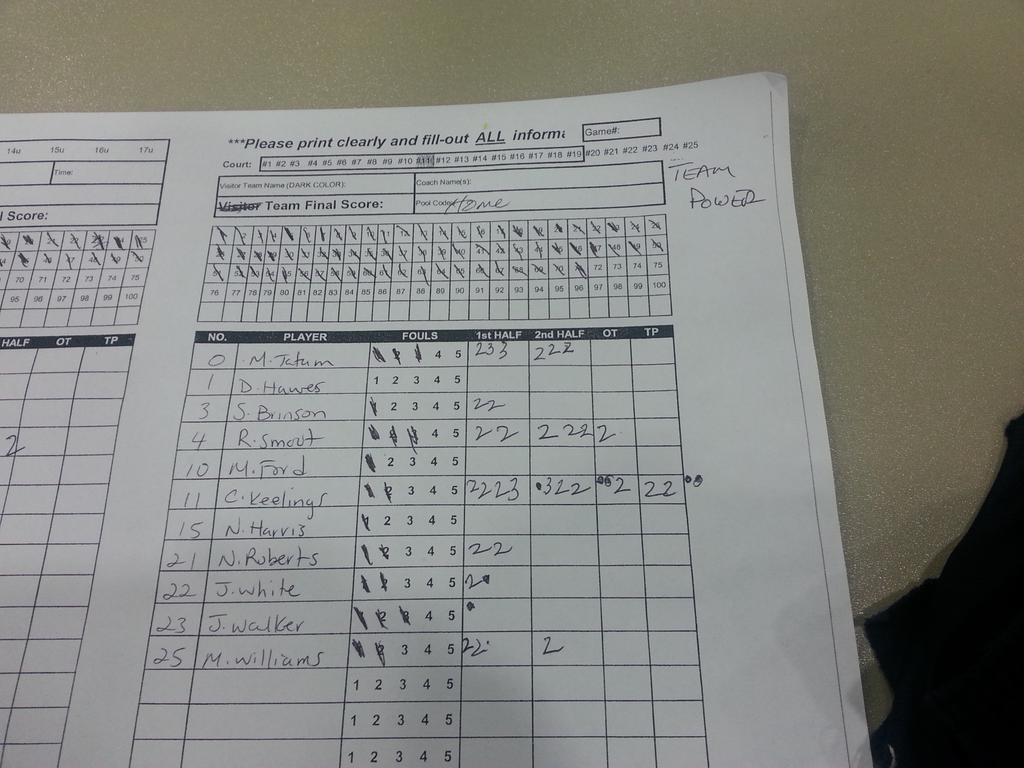 ***Please print clearly and fill-out ALL informa
Game#:
Court: #1 #2 #3 #4 #5 #6 #7 #8 #9 #10 #11 #12 #13 #14 #15 #16 #17 #18 #19 #20 #21 #22 #23 #24 #25
14u 15u 16u 17u
Time:
l Score:
Visitor Team Name (DARK COLOR):
Coach Name(s):
Visitor Team Final Score:
Pool Code: Home
TEAM
POWER
72 73 74 75
76 77 78 79 80 81 82 83 84 85 86 87 88 89 90 91 92 93 94 95 96 97 98 99 100
70 71 72 73 74 75
95 96 97 98 99 100
HALF OT TP
2
NO. PLAYER FOULS 1st HALF 2nd HALF OT TP
0 M. Tatum 1 2 3 4 5 233 222
1 D. Hawes 1 2 3 4 5
3 S. Brinson 1 2 3 4 5 22
4 R. Smoot 1 2 3 4 5 22 2222
10 M. Ford 1 2 3 4 5
11 C. Keelings 1 2 3 4 5 2223 322 2 22
15 N. Harris 1 2 3 4 5
21 N. Roberts 1 2 3 4 5 22
22 J. White 1 2 3 4 5 2
23 J. Walker 1 2 3 4 5
25 M. Williams 1 2 3 4 5 22 2
1 2 3 4 5
1 2 3 4 5
1 2 3 4 5